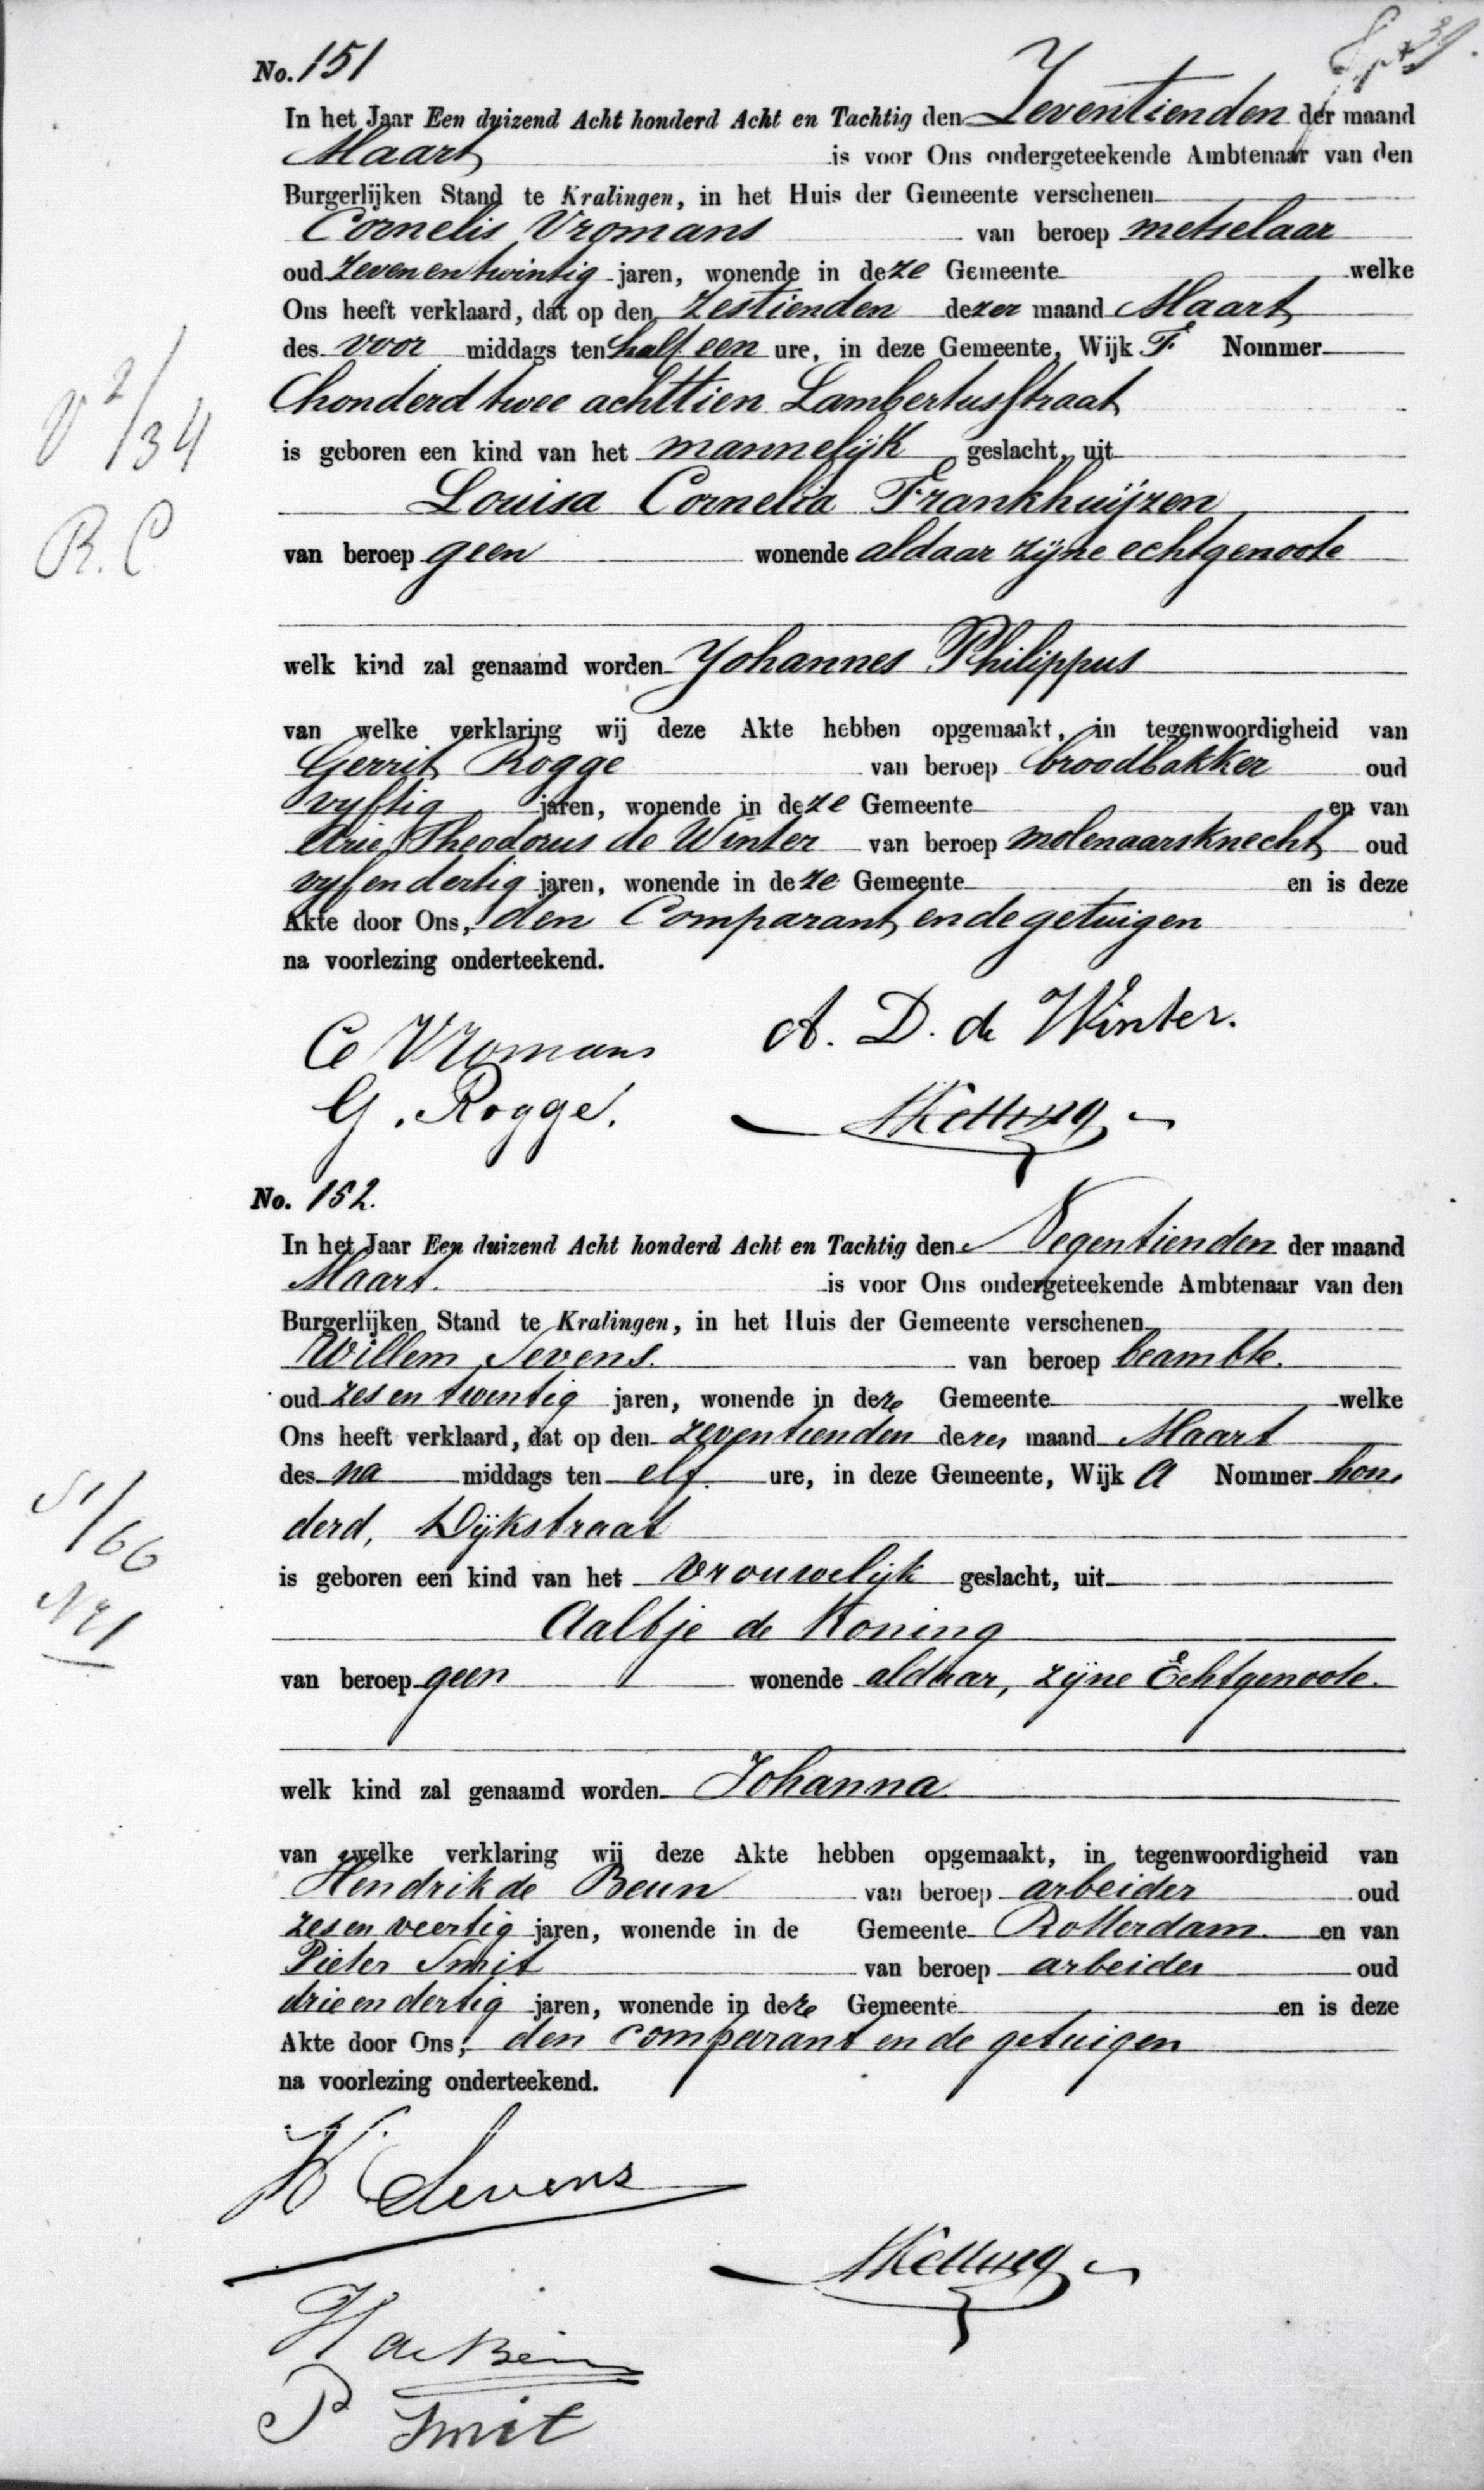 No. 151
In het Jaar Een duizend Acht honderd Acht en Tachtig den Zeventienden der maand
Maart is voor Ons ondergeteekende Ambtenaar van den
Burgerlijken Stand te Kralingen, in het Huis der Gemeente verschenen
Cornelis Vromans van beroep metselaar
oud zeven en twintig jaren, wonende in deze Gemeente welke
Ons heeft verklaard, dat op den zestienden dezer maand Maart
des voor middags ten half een ure, in deze Gemeente, Wijk F. Nommer
honderd twee achttien Lambertusstraat
V 2/34
is geboren een kind van het mannelijk geslacht, uit
Louisa Cornelia Frankhuijzen
R.C.
van beroep geen wonende aldaar zijne echtgenoote
welk kind zal genaamd worden Johannes Philippus
van welke verklaring wij deze Akte hebben opgemaakt, in tegenwoordigheid van
Gerrit Rogge van beroep broodbakker oud
vyftig jaren, wonende in deze Gemeente en van
Arie Theodorus de Winter van beroep molenaarsknecht oud
vyf en dertig jaren, wonende in deze Gemeente en is deze
Akte door Ons, den Comparant en de getuigen
na voorlezing onderteekend.
C Vromans A. D. de Winter.
G. Rogge.
No. 152.
In het Jaar Een duizend Acht honderd Acht en Tachtig den Negentienden der maand
Maart. is voor Ons ondergeteekende Ambtenaar van den
Burgerlijken Stand te Kralingen, in het Huis der Gemeente verschenen
Willem Sevens. van beroep beambte.
oud zes en twentig jaren, wonende in deze Gemeente welke
Ons heeft verklaard, dat op den zeventienden dezer maand Maart
des na middags ten elf. ure, in deze Gemeente, Wijk A Nommer hon,
derd, Dijkstraat
S 1/66
is geboren een kind van het vrouwelijk geslacht, uit
Aaltje de Koning
van beroep geen wonende aldaar, zijne Echtgenoote.
welk kind zal genaamd worden Johanna
van welke verklaring wij deze Akte hebben opgemaakt, in tegenwoordigheid van
Hendrik de Beun van beroep arbeider oud
zes en veertig jaren, wonende in de Gemeente Rotterdam en van
Pieter Smit van beroep arbeider oud
drie en dertig jaren, wonende in deze Gemeente en is deze
Akte door Ons, den comparant en de getuigen
na voorlezing onderteekend.
W Sevens
H de Beun
P Smit